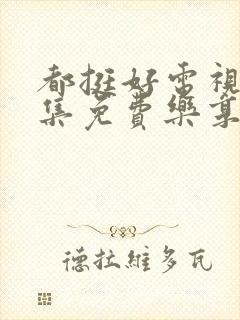 都挺好電視
集免費樂章
德拉維多瓦